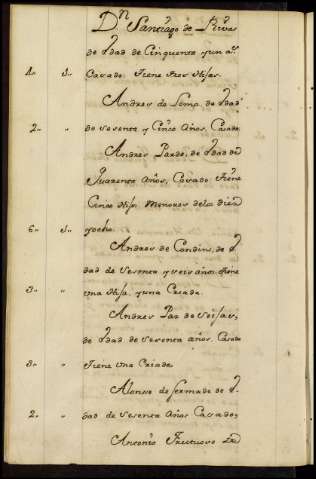 Dn. Santiago de Rivas
de Edad de Cinquenta y un as.
4. 1. Casado. Tiene tres Hijas.
Andres de Lema, de Edad
2. " de sesenta y Cinco Años, Casado.
Andres Pardo, de Edad de
Quarenta Años, Casado, tiene
Cinco Hijos Menores de la diez
6. 1. y ocho.
Andres de Candins, de E-
dad de sesenta y seis años, tiene
3. " una Hija, y una Criada.
Andres Paz de Seijas,
de Edad de sesenta años, Casado
3. " tiene una Criada.
Alonso de fermade de E-
2. " dad de sesenta Años Cassado,
Antonio Fructuoso de